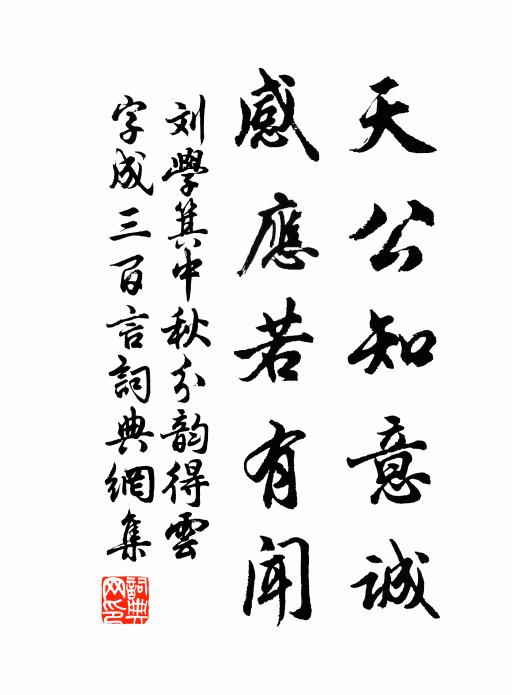 天公知意誠
感應若有聞
刘學箕中秋分韵得雲
字成三百言詞典網集
詞典網印